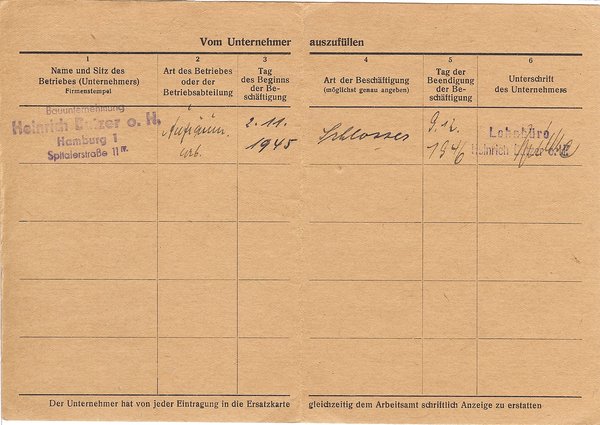 Vom Unternehmer auszufüllen
1
Name und Sitz des
Betriebes (Unternehmers)
Firmenstempel
2
Art des Betriebes
oder der
Betriebsabteilung
3
Tag
des Beginns
der Be-
schäftigung
4
Art der Beschäftigung
(möglichst genau angeben)
5
Tag der
Beendigung
der Be-
schäftigung
6
Unterschrift
des Unternehmers
Bauunternehmung
Heinrich o. H.
Hamburg 1
Spitalerstraße 11 IV.
Aufräum.
arb.
2. 11.
1945
Schlosser
9. 12.
1946
Lohnbüro
Heinrich
Der Unternehmer hat von jeder Eintragung in die Ersatzkarte gleichzeitig dem Arbeitsamt schriftlich Anzeige zu erstatten